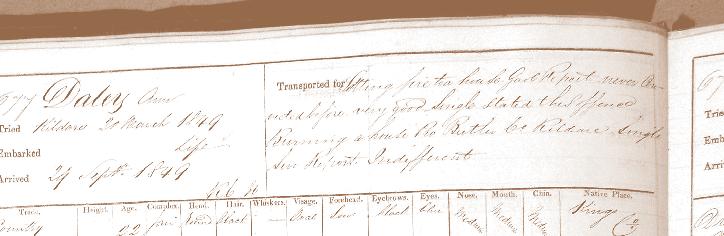 Daley Ann
Transported for Setting fire to a house Gaol Report never Con-
Tried Kildare 20 March 1849
victed before very good Single Stated this offence
Embarked Life
Burning a house Butler Co Kildare Single
Arrived 29 Septr 1849
Sur Report Indifferent
Trade. Height. Age. Complex. Head. Hair. Whiskers. Visage. Forehead. Eyebrows. Eyes. Nose. Mouth. Chin. Native Place.
Country 22 fair Round Black — Oval Low Black Blue Medm Medm Medm King Co
Tried
Embarked
Arrived